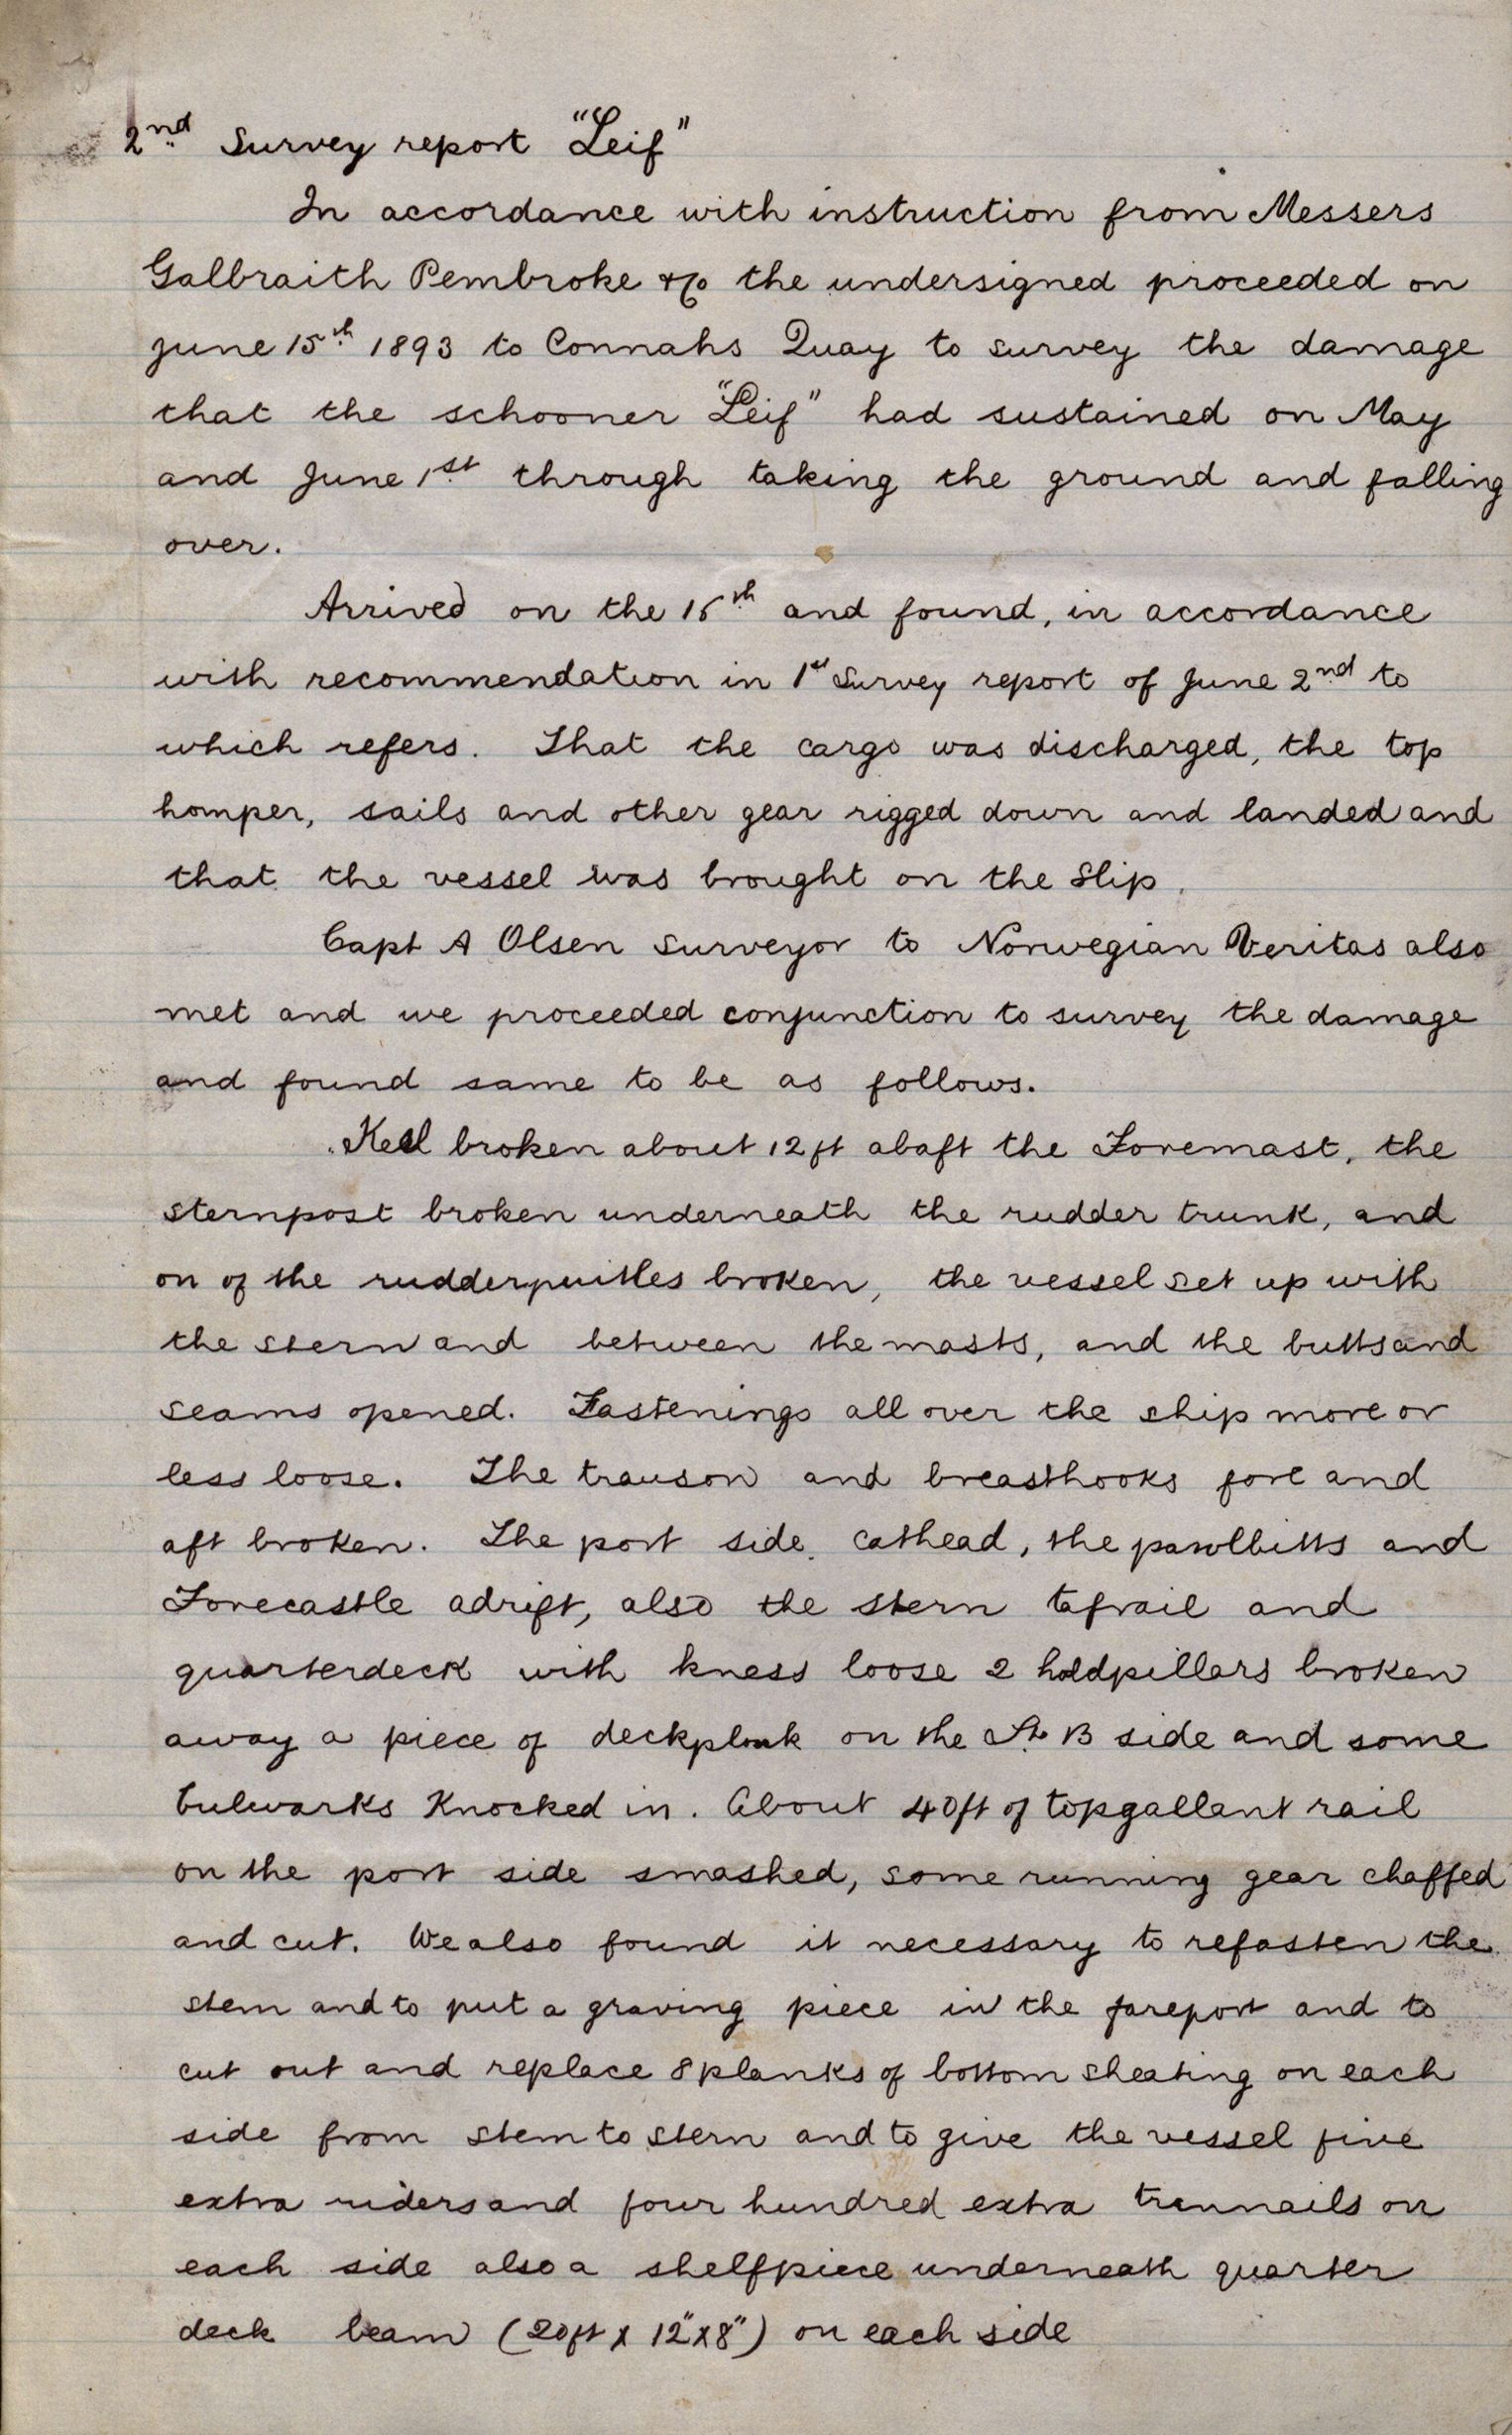 2nd Survey report "Leif"
In accordance with instruction from Messers
Galbraith Pembroke & Co the undersigned proceeded on
June 15th 1893 to Connahs Quay to survey the damage
that the schooner "Leif" had sustained on May
and June 1st through taking the ground and falling
over.
Arrived on the 15th and found, in accordance
with recommendation in 1st Survey report of June 2nd to
which refers. That the cargo was discharged, the top
homper, sails and other gear rigged down and landed and
that the vessel was brought on the Slip.
Capt A Olsen surveyor to Norwegian Veritas also
met and we proceeded conjunction to survey the damage
and found same to be as follows.
Keel broken about 12 ft abaft the Foremast, the
sternpost broken underneath the rudder trunk, and
on of the rudderpuitles broken, the vessel set up with
the stern and between the masts, and the butts and
seams opened. Fastenings all over the ship more or
less loose. The transon and breasthooks fore and
aft broken. The port side cathead, the pawlbitts and
Forecastle adrift, also the stern tafrail and
quarterdeck with kness loose 2 holdpillars broken
away a piece of deckplank on the St B side and some
bulwarks knocked in. About 40 ft of topgallant rail
on the port side smashed, some running gear chaffed
and cut. We also found it necessary to refasten the
stem and to put a graving piece in the foreport and to
cut out and replace 8 planks of bottom sheating on each
side from stem to stern and to give the vessel five
extra riders and four hundred extra trennails on
each side also a shelfpiece underneath quarter
deck beam (20ft x 12" x 8") on each side